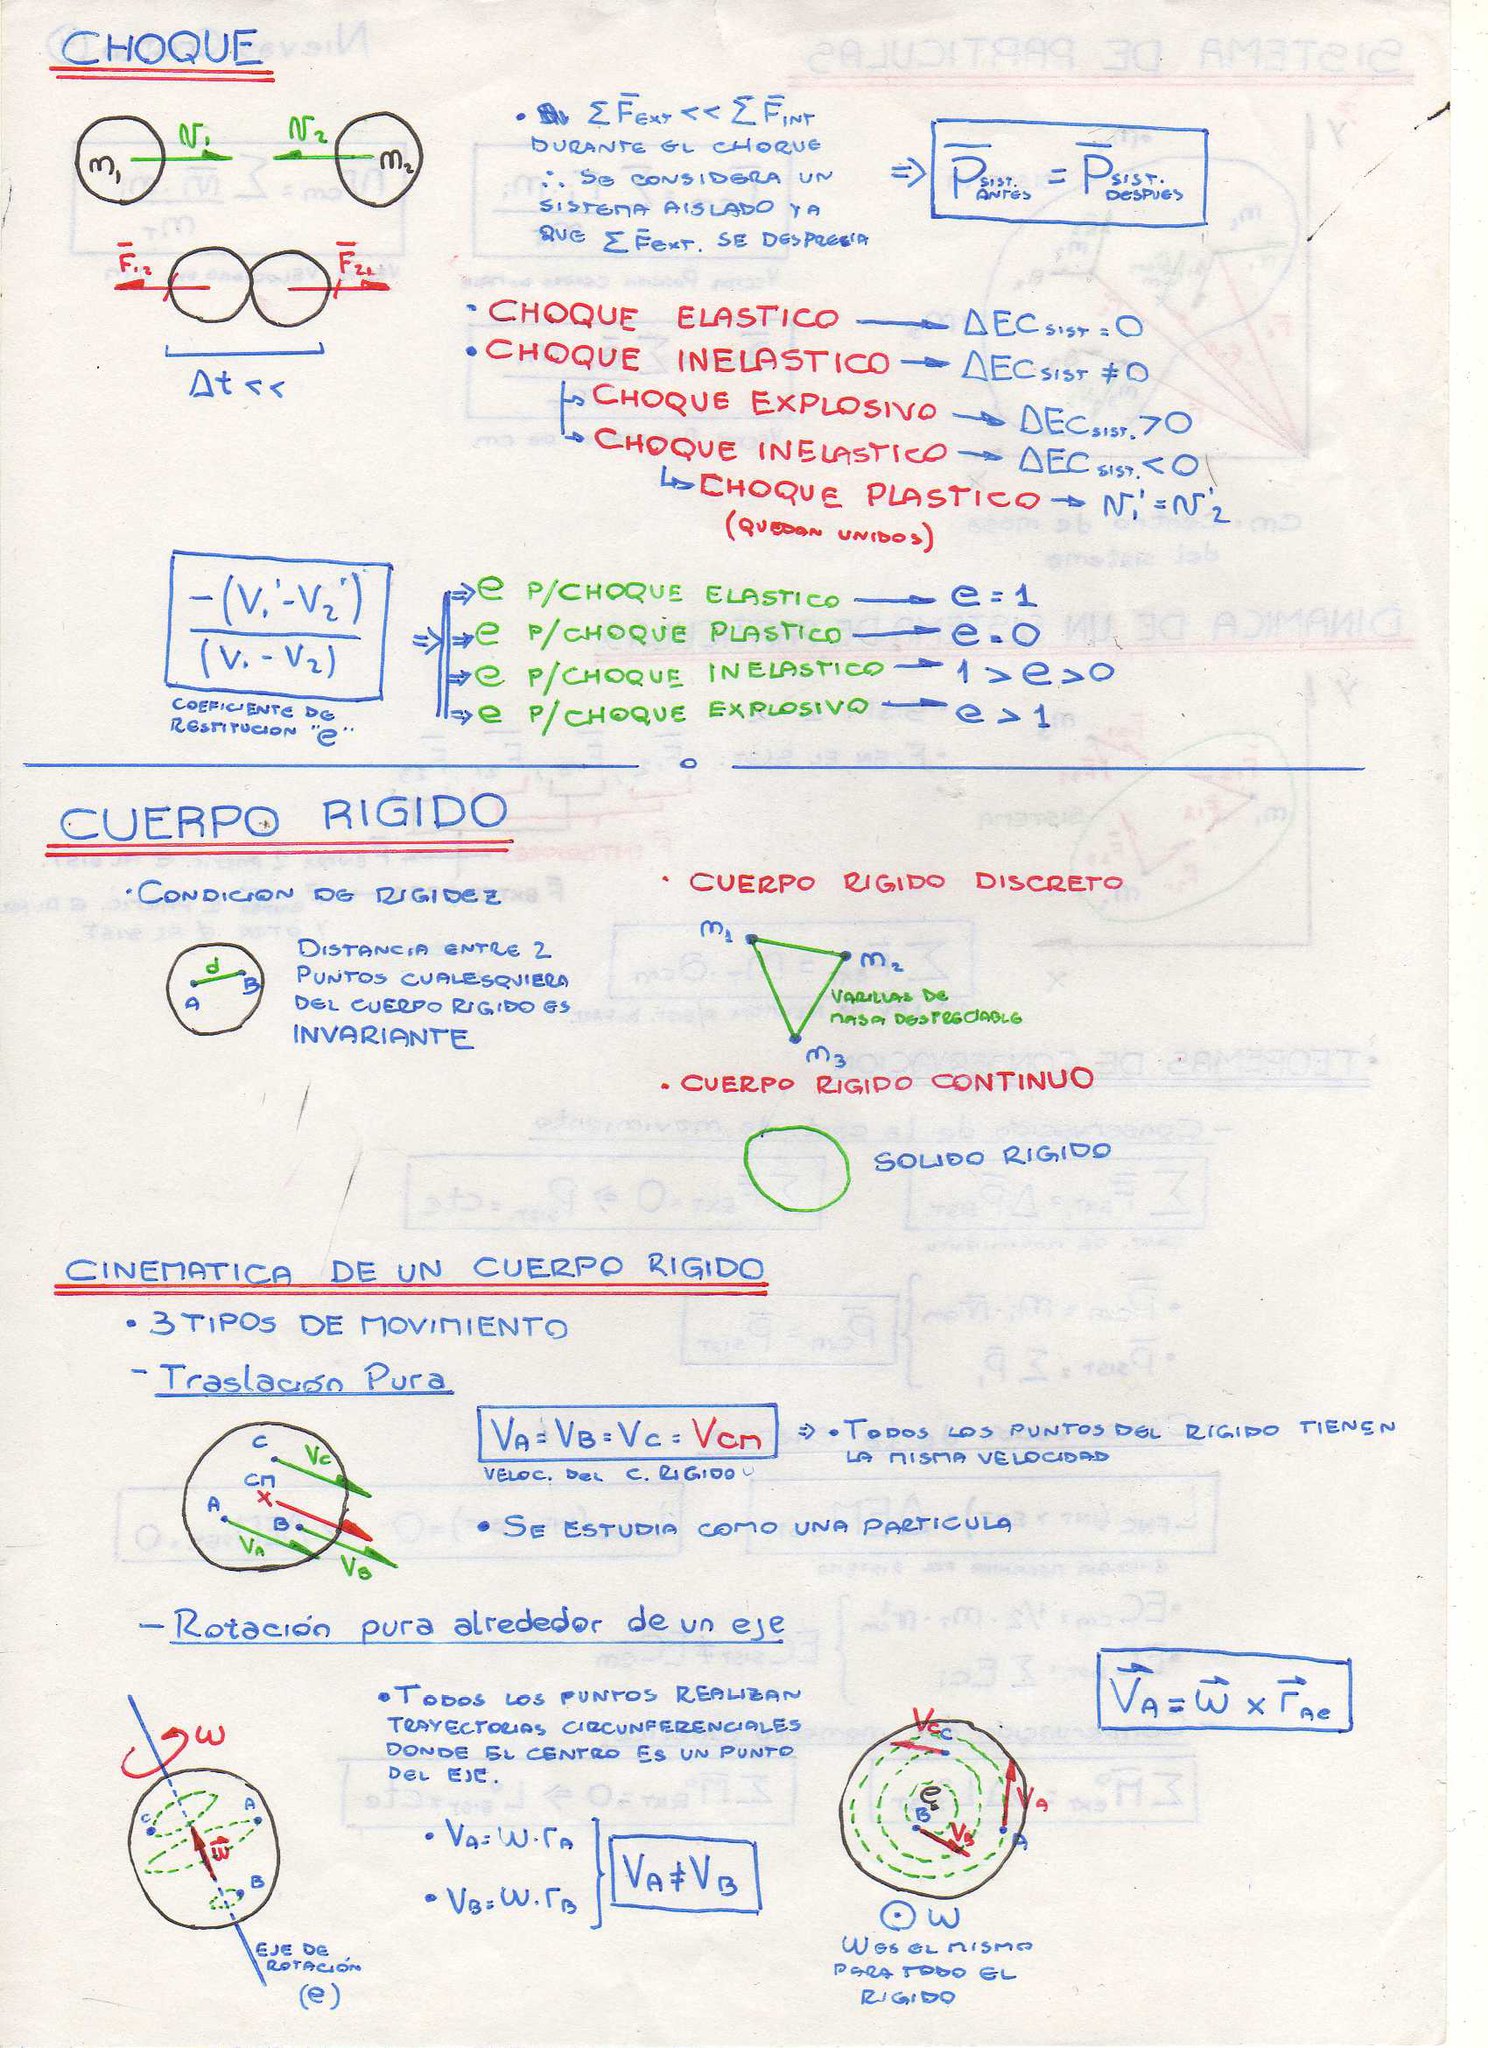 CHOQUE
m₁ v₁ v₂ m₂
F̄₁₂ F̄₂₁
Δt <<
• Σ F̄EXT << Σ F̄INT
DURANTE EL CHOQUE
∴ SE CONSIDERA UN
SISTEMA AISLADO YA
QUE Σ F̄EXT. SE DESPRECIA
⇒ P̄SIST. ANTES = P̄SIST. DESPUES
• CHOQUE ELASTICO → ΔECSIST = 0
• CHOQUE INELASTICO → ΔECSIST ≠ 0
↳ CHOQUE EXPLOSIVO → ΔECSIST. > 0
↳ CHOQUE INELASTICO → ΔECSIST. < 0
↳ CHOQUE PLASTICO → v₁' = v₂'
(QUEDAN UNIDOS)
-(V₁' - V₂')
(V₁ - V₂)
COEFICIENTE DE
RESTITUCION "e"
⇒ e P/CHOQUE ELASTICO → e = 1
⇒ e P/CHOQUE PLASTICO → e = 0
⇒ e P/CHOQUE INELASTICO → 1 > e > 0
⇒ e P/CHOQUE EXPLOSIVO → e > 1
CUERPO RIGIDO
• CONDICION DE RIGIDEZ
A d B
DISTANCIA ENTRE 2
PUNTOS CUALESQUIERA
DEL CUERPO RIGIDO ES
INVARIANTE
• CUERPO RIGIDO DISCRETO
m₁
m₂
VARILLAS DE
MASA DESPRECIABLE
m₃
• CUERPO RIGIDO CONTINUO
SOLIDO RIGIDO
CINEMATICA DE UN CUERPO RIGIDO
• 3 TIPOS DE MOVIMIENTO
- Traslación Pura
C VC
CM
A B
VA VB
VA = VB = VC = Vcm
VELOC. DEL C. RIGIDO
⇒ • TODOS LOS PUNTOS DEL RIGIDO TIENEN
LA MISMA VELOCIDAD
• SE ESTUDIA COMO UNA PARTICULA
- Rotación pura alrededor de un eje
ω
C A
ω̄
B
EJE DE
ROTACIÓN
(e)
• TODOS LOS PUNTOS REALIZAN
TRAYECTORIAS CIRCUNFERENCIALES
DONDE EL CENTRO ES UN PUNTO
DEL EJE.
• VA = ω · rA
• VB = ω · rB
VA ≠ VB
VC C
e
B VB
VA A
⊙ ω
W ES EL MISMO
PARA TODO EL
RIGIDO
V⃗A = ω⃗ × r⃗Ae